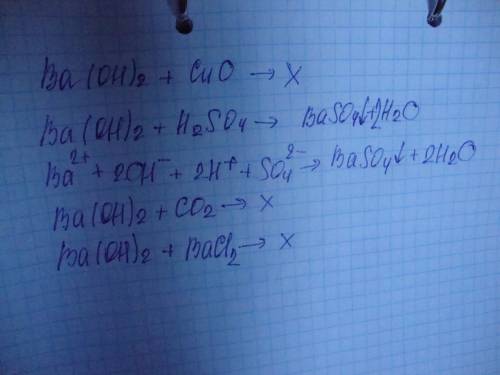 Ba(OH)2 + CuO → X
Ba(OH)2 + H2SO4 → BaSO4↓+2H2O
Ba2+ + 2OH- + 2H+ + SO4 2- → BaSO4↓ + 2H2O
Ba(OH)2 + CO2 → X
Ba(OH)2 + BaCl2 → X